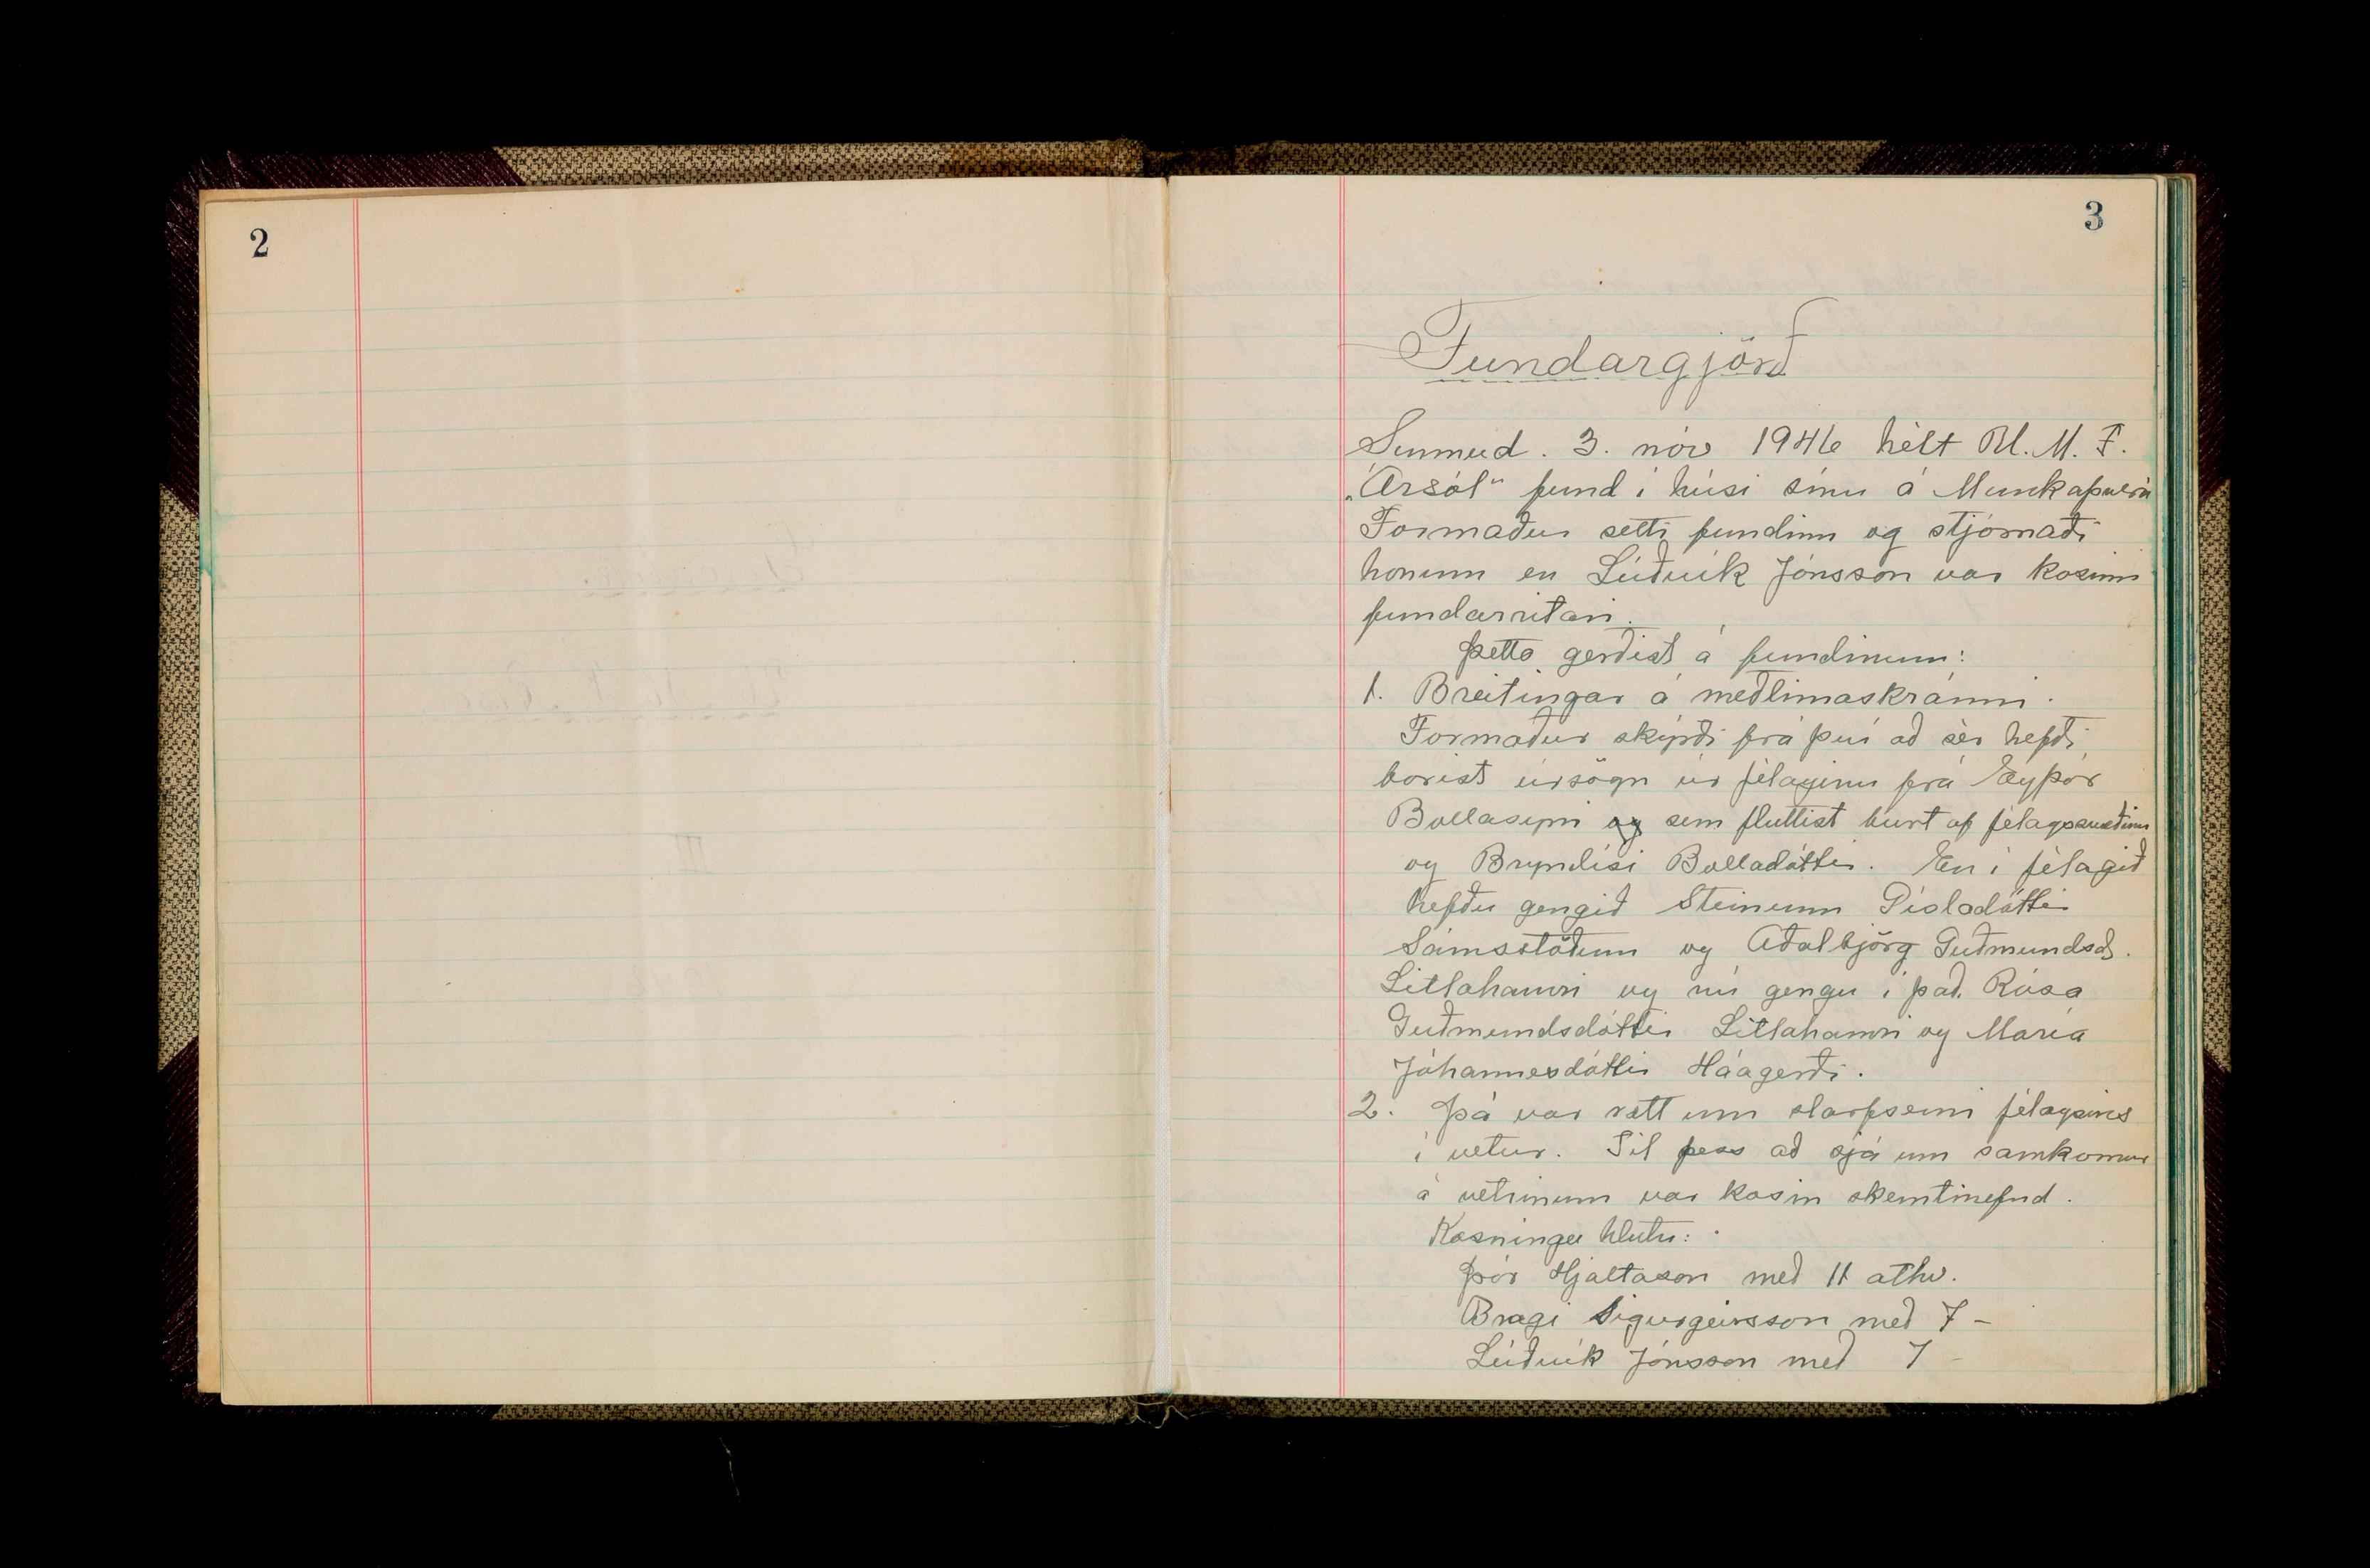 2
3
Fundargjörð
Sunnud. 3. nóv 1946 hélt U. M. F.
„Ársól" fund í húsi sínu á Munkaþverá
Formaður setti fundinn og stjórnaði
honum en Lúðvík Jónsson var kosinn
fundarritari.
Þetta gerðist á fundinum:
1. Breitingar á meðlimaskránni.
Formaður skýrði frá því að sér hefði
borist úrsögn úr félaginu frá Eyþór
Bollasyni og sem fluttist burt af félagssvæðinu
og Bryndísi Bolladóttir. En í félagið
hefðu gengið Steinunn Píolsdóttir
Sámsstöðum og Aðalbjörg Guðmundsd.
Litlahamri og nú gengu í það. Rósa
Guðmundsdóttir Litlahamri og María
Jóhannesdóttir Háagerði.
2. Þá var rætt um starfsemi félagsins
í vetur. Til þess að sjá um samkomur
á vetrinum var kosin skemtinefnd.
Kosningu hlutu:
Þór Hjaltason með 11 atkv.
Bragi Sigurgeirsson með 7 -
Lúðvík Jónsson með 7 -